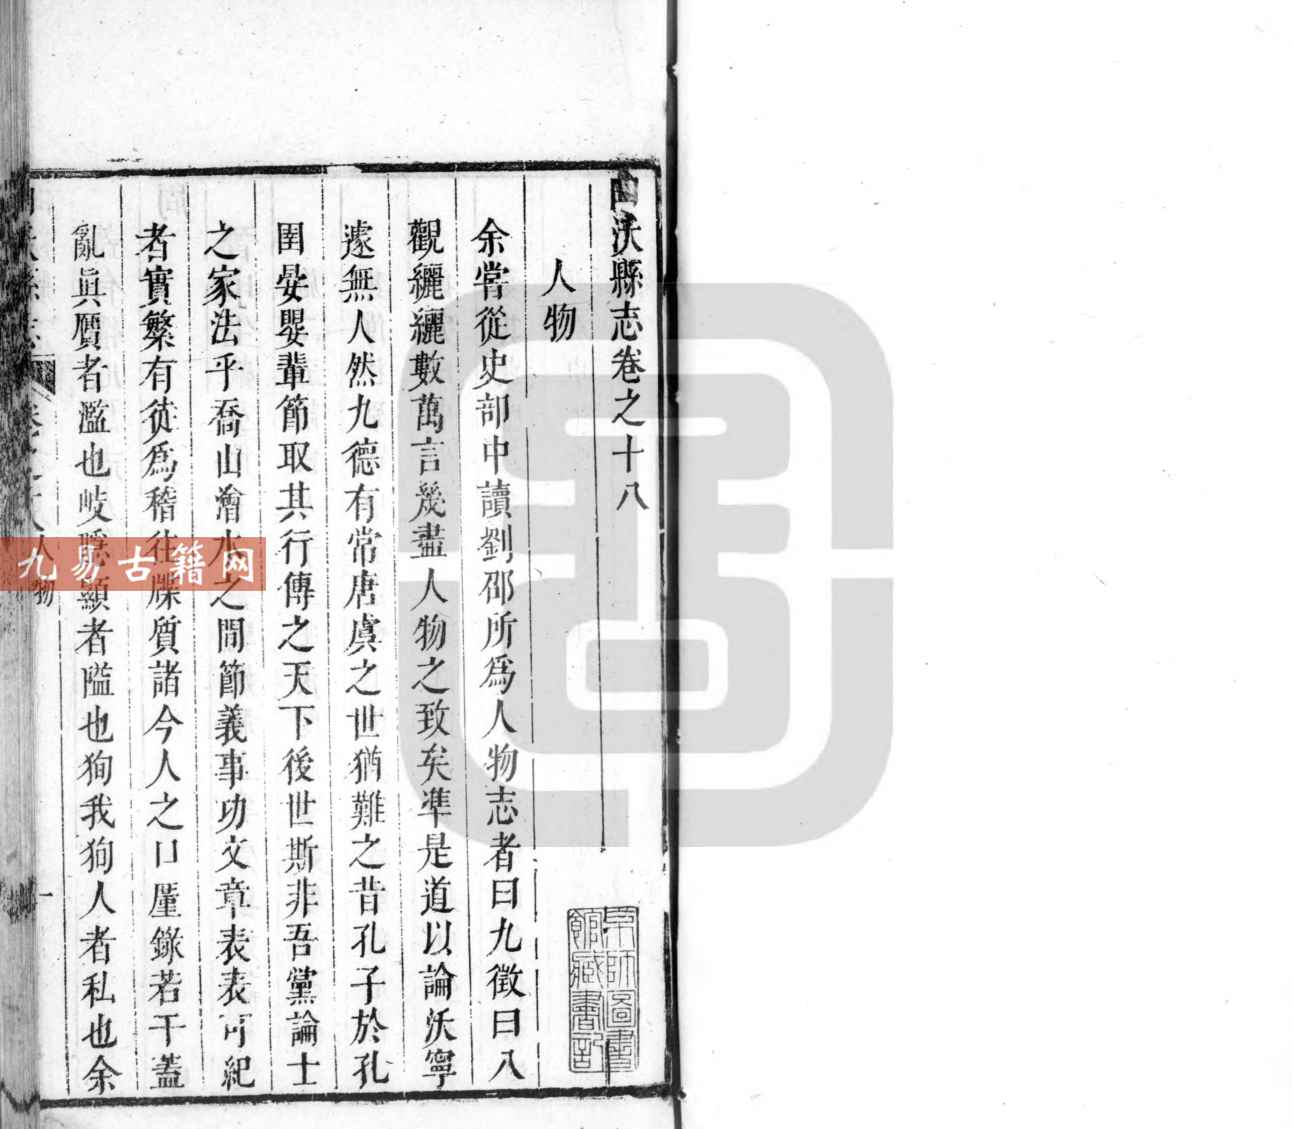 曲沃縣志卷之十八
人物
余嘗從史部中讀劉邵所爲人物志者曰九徵曰八
觀纚纚數萬言幾盡人物之致矣準是道以論沃寧
遂無人然九德有常唐虞之世猶難之昔孔子於孔
圉晏嬰輩節取其行傳之天下後世斯非吾黨論士
之家法乎喬山澮水之間節義事功文章表表可紀
者實繁有徒爲稽往牒質諸今人之口厪錄若干蓋
亂眞贋者濫也岐隱顯者隘也狥我狥人者私也余
曲沃縣志
卷之十八人物
一
京師圖書
館藏書記
九易古籍网